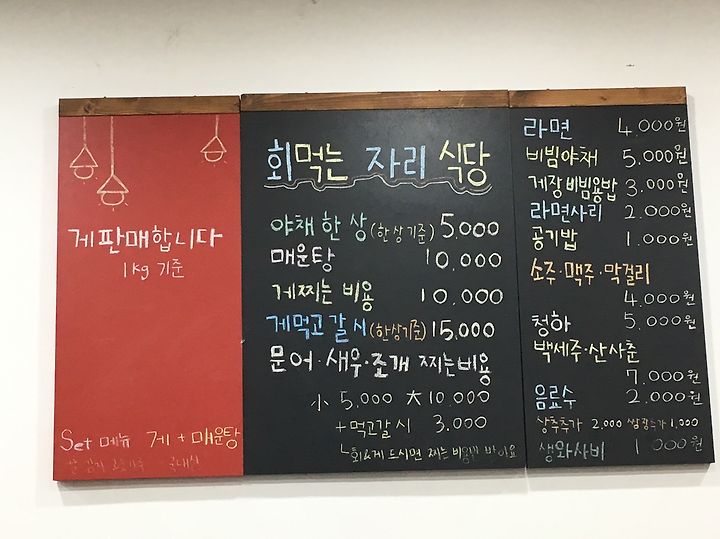 게 판매합니다
1kg 기준
Set 메뉴 게 + 매운탕
쌀 김치 고춧가루 국내산
회먹는 자리 식당
야채 한 상 (한상기준) 5.000
매운탕 10.000
게찌는 비용 10.000
게먹고 갈 시 (한상기준) 15.000
문어·새우·조개 찌는비용
小 5.000 大 10.000
+ 먹고갈 시 3.000
ㄴ회&게 드시면 찌는비용만 받아요
라면 4.000원
비빔야채 5.000원
게장비빔용밥 3.000원
라면사리 2.000원
공기밥 1.000원
소주·맥주·막걸리
4.000원
청하 5.000원
백세주·산사춘
7.000원
음료수 2.000원
상추추가 2.000 쌈장추가 1.000
생와사비 1.000원